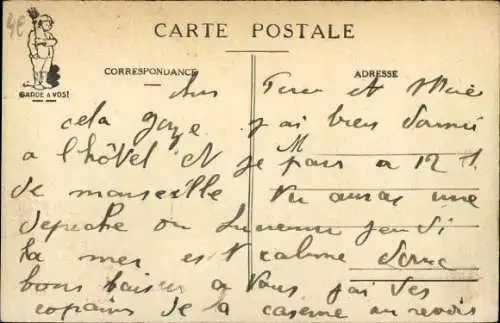 4e
CARTE POSTALE
CORRESPONDANCE
ADRESSE
GARDE A VOS!
Cher Père et Mère
cela gaze j'ai bien dormi
a l'hôtel et je pars a 12 h
M
de marseille Vu auras une
depeche ou Jeudi
la mer est calme donc
bons baiser a Vous j'ai des
copains de la caserne au revoir